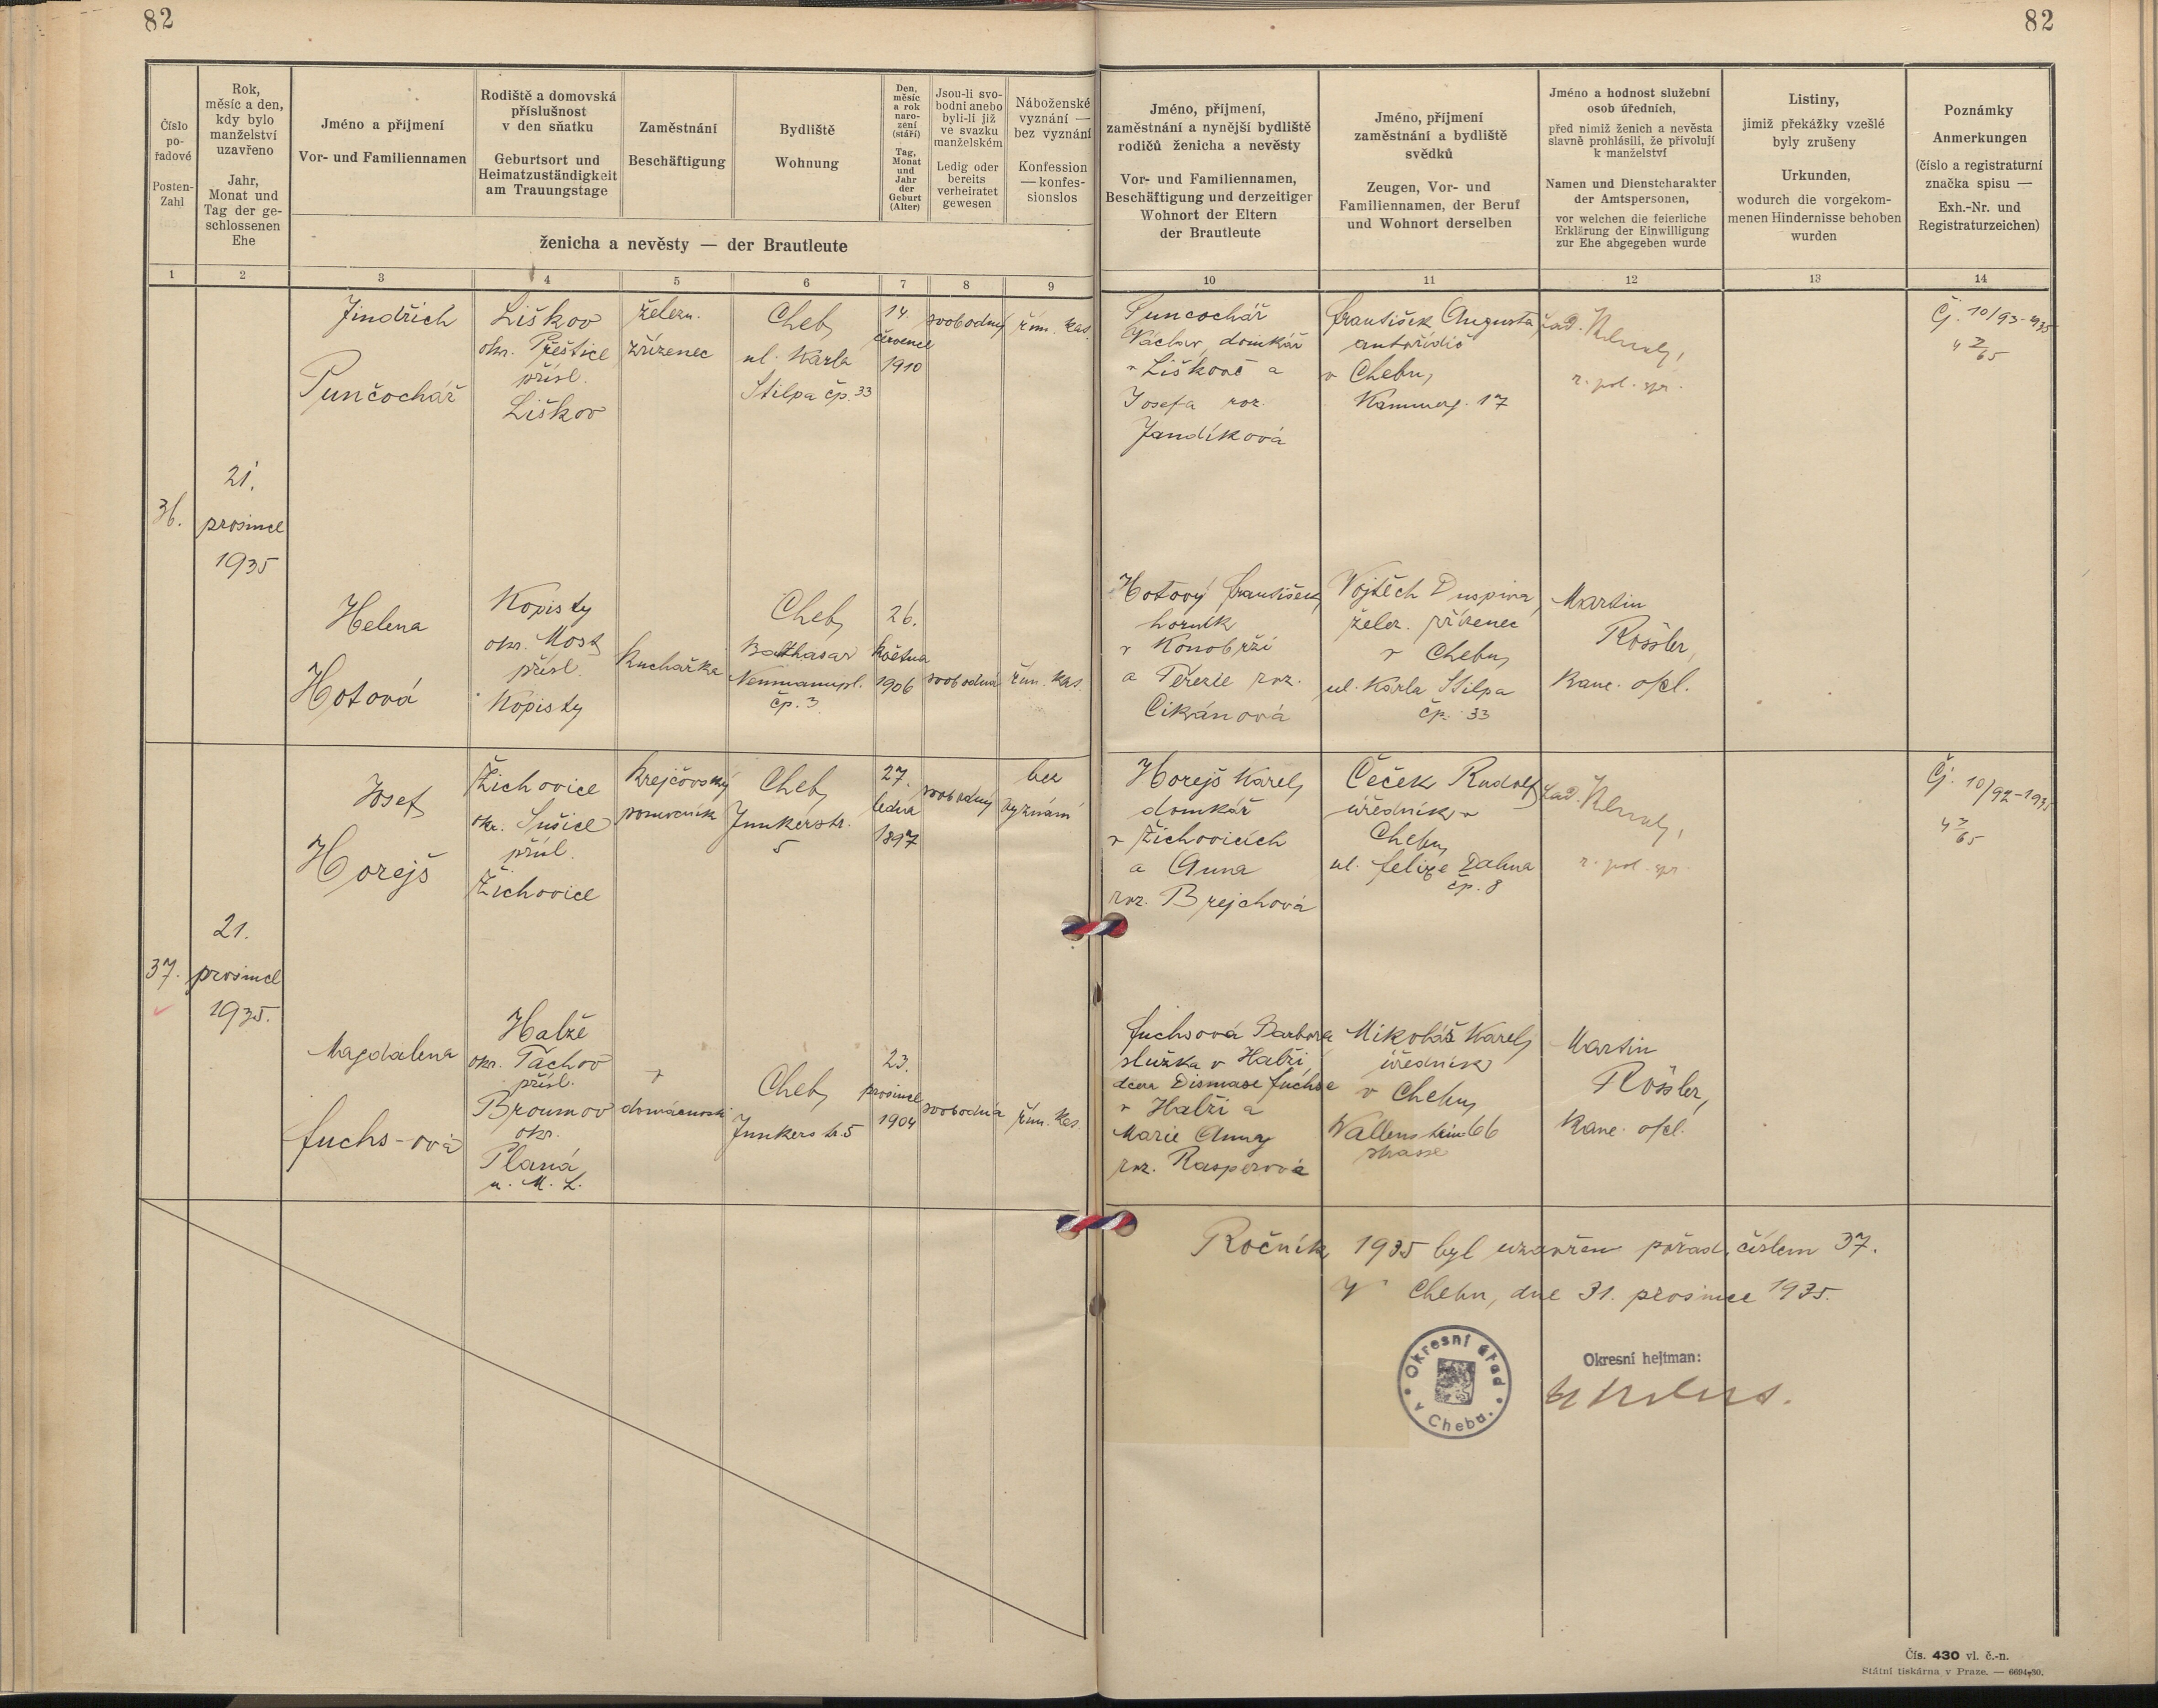 82
82
Číslo
po-
řadové
Posten-
Zahl
Rok,
měsíc a den,
kdy bylo
manželství
uzavřeno
Jahr,
Monat und
Tag der ge-
schlossenen
Ehe
Jméno a příjmení
Vor- und Familiennamen
Rodiště a domovská
příslušnost
v den sňatku
Geburtsort und
Heimatzuständigkeit
am Trauungstage
Zaměstnání
Beschäftigung
Bydliště
Wohnung
Den,
měsíc
a rok
naro-
zení
(stáří)
Tag,
Monat
und
Jahr
der
Geburt
(Alter)
Jsou-li svo-
bodni anebo
byli-li již
ve svazku
manželském
Ledig oder
bereits
verheiratet
gewesen
Náboženské
vyznání —
bez vyznání
Konfession
— konfes-
sionslos
ženicha a nevěsty — der Brautleute
Jméno, příjmení,
zaměstnání a nynější bydliště
rodičů ženicha a nevěsty
Vor- und Familiennamen,
Beschäftigung und derzeitiger
Wohnort der Eltern
der Brautleute
Jméno, příjmení
zaměstnání a bydliště
svědků
Zeugen, Vor- und
Familiennamen, der Beruf
und Wohnort derselben
Jméno a hodnost služební
osob úředních,
před nimiž ženich a nevěsta
slavně prohlásili, že přivolují
k manželství
Namen und Dienstcharakter
der Amtspersonen,
vor welchen die feierliche
Erklärung der Einwilligung
zur Ehe abgegeben wurde
Listiny,
jimiž překážky vzešlé
byly zrušeny
Urkunden,
wodurch die vorgekom-
menen Hindernisse behoben
wurden
Poznámky
Anmerkungen
(číslo a registraturní
značka spisu —
Exh.-Nr. und
Registraturzeichen)
1 2 3 4 5 6 7 8 9 10 11 12 13 14
36.
21.
prosince
1935
Jindřich
Punčochář
Liškov
okr. Přeštice
přísl.
Liškov
železn.
zřízenec
Cheb,
ul. Karla
Stilpa čp. 33
14.
července
1910
svobodný
řím. kat.
Puncochář
Václav, domkář
v Liškově a
Josefa roz.
Jandíková
František Augusta,
autořidič
v Chebu,
Kammerg. 17
r. pol. spr.
Čj. 10/93-1935
4 7/65
Helena
Hotová
Kopisty
okr. Most
přísl.
Kopisty
Kuchařka
Cheb,
Balthasar
Neumannpl.
čp. 3
26.
května
1906
svobodná
řím. kat.
Hotový František,
horník
v Konobrži
a Terezie roz.
Cikánová
Vojtěch Duspiva,
želez. zřízenec
v Chebu,
ul. Karla Stilpa
čp. 33
Martin
Rössler,
Kanc. ofcl.
37.
21.
prosince
1935.
Josef
Horejš
Žichovice
okr. Sušice
přísl.
Žichovice
Krejčovský
pomocník
Cheb,
Junkerstr.
5
27.
ledna
1897
svobodný
bez
vyznání
Horejš Karel,
domkář
v Žichovicích
a Anna
roz. Brejchová
Čeček Rudolf
úředník v
Chebu,
ul. Felixe Dahna
čp. 8
r. pol. spr.
Čj. 10/92-1935
4 7/65
Magdalena
Fuchs-ová
Halže
okr. Tachov
přísl.
Broumov
okr.
Planá,
u. M. L.
v
domácnosti
Cheb,
Junkerstr. 5
23.
prosince
1904
svobodná
řím. kat.
Fuchsová Barbora
služka v Halži,
dcera Dismase Fuchse
v Halži a
Marie Anny
roz. Rasperová
Mikoláš Karel,
úředník
v Chebu,
Wallenstein 66
strasse
Martin
Rössler,
Kanc. ofcl.
Ročník 1935 byl uzavřen pořad. číslem 37.
V Chebu, dne 31. prosince 1935.
Okresní úřad
v Chebu.
Okresní hejtman:
Čís. 430 vl. č.-n.
Státní tiskárna v Praze. — 6694-30.